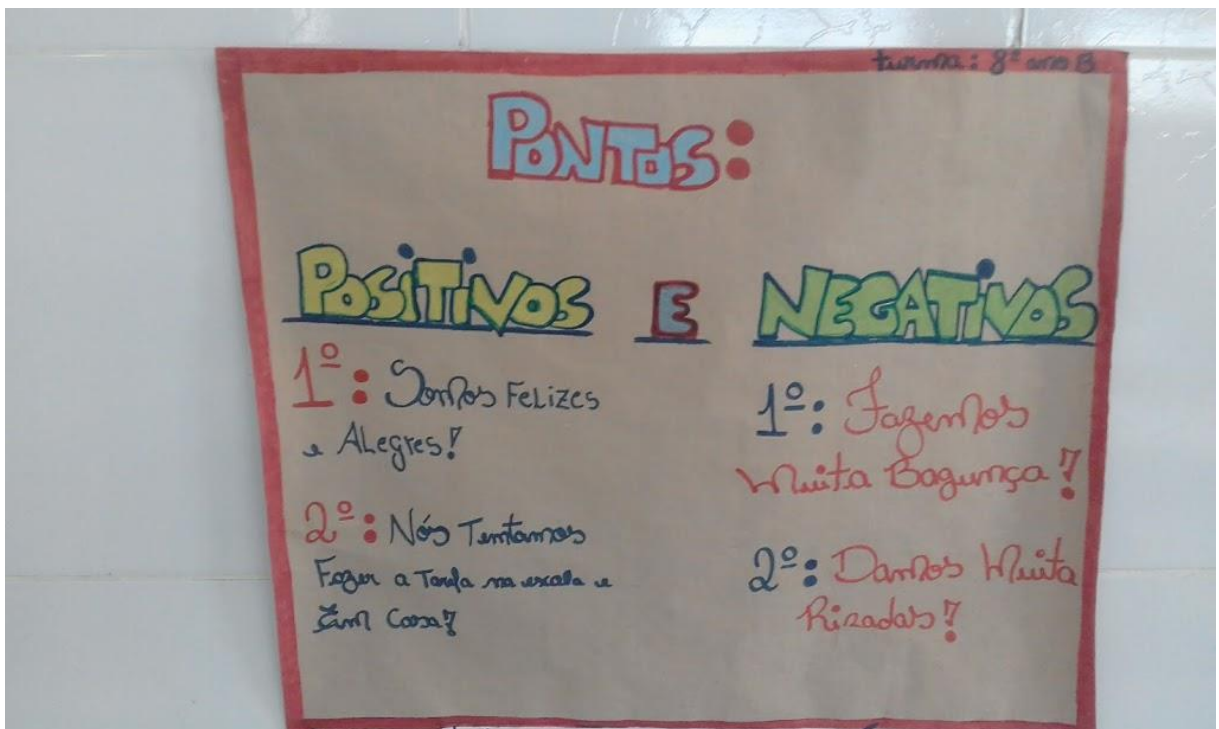 turma: 8º ano B
PONTOS:
POSITIVOS E NEGATIVOS
1º: Somos Felizes
e Alegres!
2º: Nós Tentamos
Fazer a Tarefa na escola e
Em Casa!
1º: Fazemos
Muita Bagunça!
2º: Damos Muita
Rizadas!